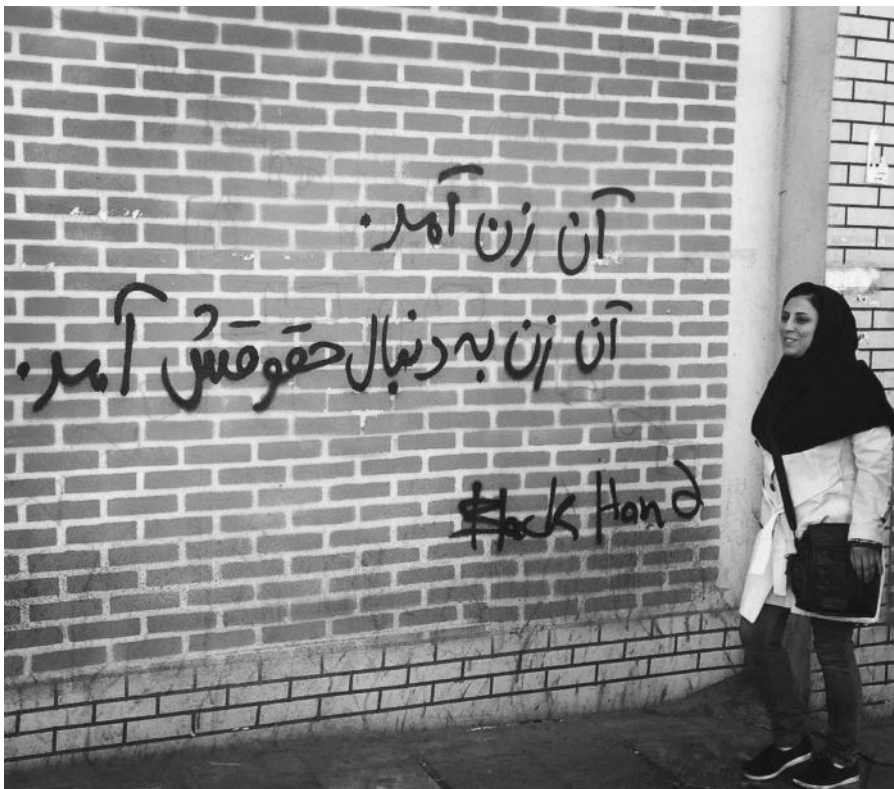 آن زن آمد.
آن زن به دنبال حقوقش آمد.
Black Hand